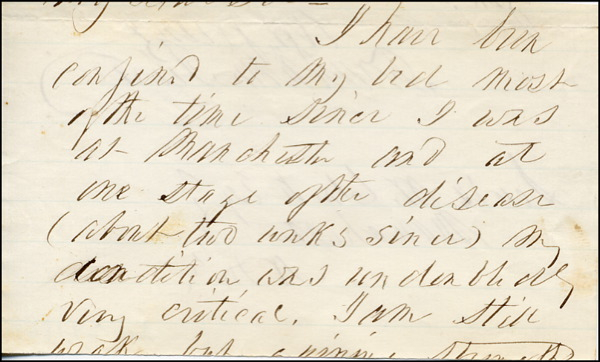 My Dear Sir
I have been
confined to my bed most
of the time since I was
at Manchester and at
one stage of the disease
(about two weeks since) my
condition was undoubtedly
very critical. I am still
weak but gaining strength